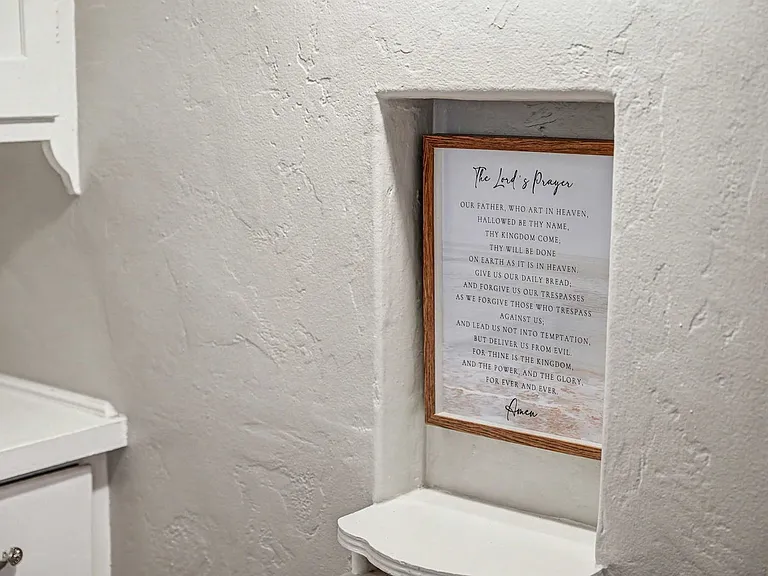 The Lord's Prayer
OUR FATHER, WHO ART IN HEAVEN,
HALLOWED BE THY NAME,
THY KINGDOM COME,
THY WILL BE DONE
ON EARTH AS IT IS IN HEAVEN,
GIVE US OUR DAILY BREAD;
AND FORGIVE US OUR TRESPASSES
AS WE FORGIVE THOSE WHO TRESPASS
AGAINST US;
AND LEAD US NOT INTO TEMPTATION,
BUT DELIVER US FROM EVIL.
FOR THINE IS THE KINGDOM,
AND THE POWER, AND THE GLORY,
FOR EVER AND EVER.
Amen